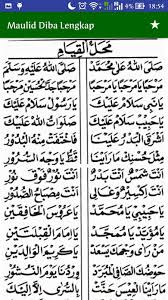 18:54
Maulid Diba Lengkap
محل القيام
صَلَّى اللهُ عَلَى مُحَمَّدْ صَلَّى اللهُ عَلَيْهِ وَسَلَّمْ
مَرْحَبًا يَا مَرْحَبًا يَا مَرْحَبًا
يَا نَبِي سَلَامْ عَلَيْكَ يَا رَسُولْ سَلَامْ عَلَيْكَ
يَا حَبِيبْ سَلَامْ عَلَيْكَ صَلَوَاتُ اللهْ عَلَيْكَ
أَشْرَقَ الْبَدْرُ عَلَيْنَا فَاخْتَفَتْ مِنْهُ الْبُدُورْ
مِثْلَ حُسْنِكْ مَا رَأَيْنَا قَطُّ يَا وَجْهَ السُّرُورْ
أَنْتَ شَمْسٌ أَنْتَ بَدْرٌ أَنْتَ نُورٌ فَوْقَ نُورْ
أَنْتَ إِكْسِيرٌ وَغَالِي أَنْتَ مِصْبَاحُ الصُّدُورْ
يَا حَبِيبِي يَا مُحَمَّدْ يَا عَرُوسَ الْخَافِقَيْنِ
يَا مُؤَيَّدْ يَا مُمَجَّدْ يَا إِمَامَ الْقِبْلَتَيْنِ
مَنْ رَأَى وَجْهَكَ يَسْعَدْ يَا كَرِيمَ الْوَالِدَيْنِ
حَوْضُكَ الصَّافِي الْمُبَرَّدْ وِرْدُنَا يَوْمَ النُّشُورْ